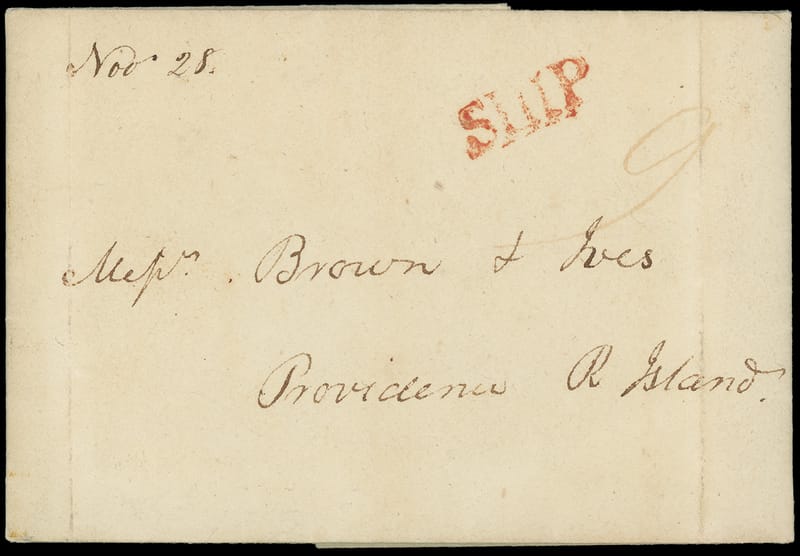 Novr 28.
SHIP
9
Messrs. Brown & Ives
Providence R Island.